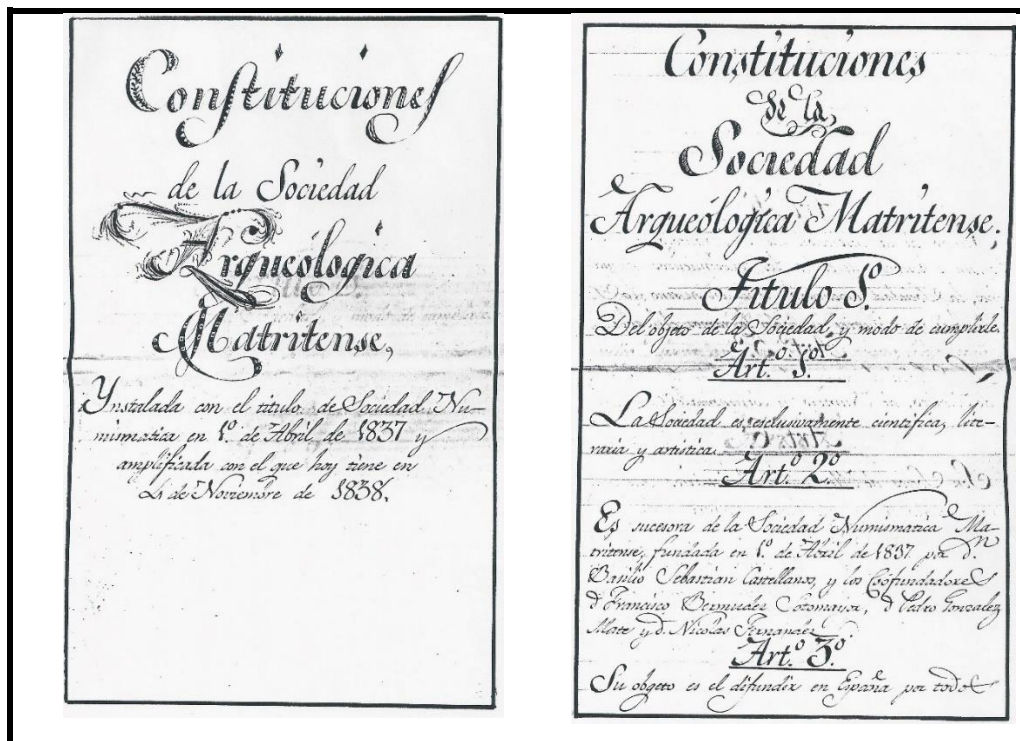 Constituciones
de la Sociedad
Arqueólogica
Matritense,
Ynstalada con el titulo de Sociedad Nu-
mismatica en 1º de Abril de 1837 y
amplificada con el que hoy tiene en
de Noviembre de 1838.
Constituciones
de la
Sociedad
Arqueólogica Matritense.
Titulo 1º
Del objeto de la Sociedad, y modo de cumplirle.
Artº 1º
La Sociedad es esclusivamente cientifica, lite-
raria y artistica.
Artº 2º
Es sucesora de la Sociedad Numismatica Ma-
tritense, fundada en 1º de Abril de 1837 por dn
Basilio Sebastian Castellanos, y los Cofundadores
d Francisco Bermudez Sotomayor, d Pedro Gonzalez
Mate y d. Nicolas Fernandez
Artº 3º
Su objeto es el difundir en España por todos